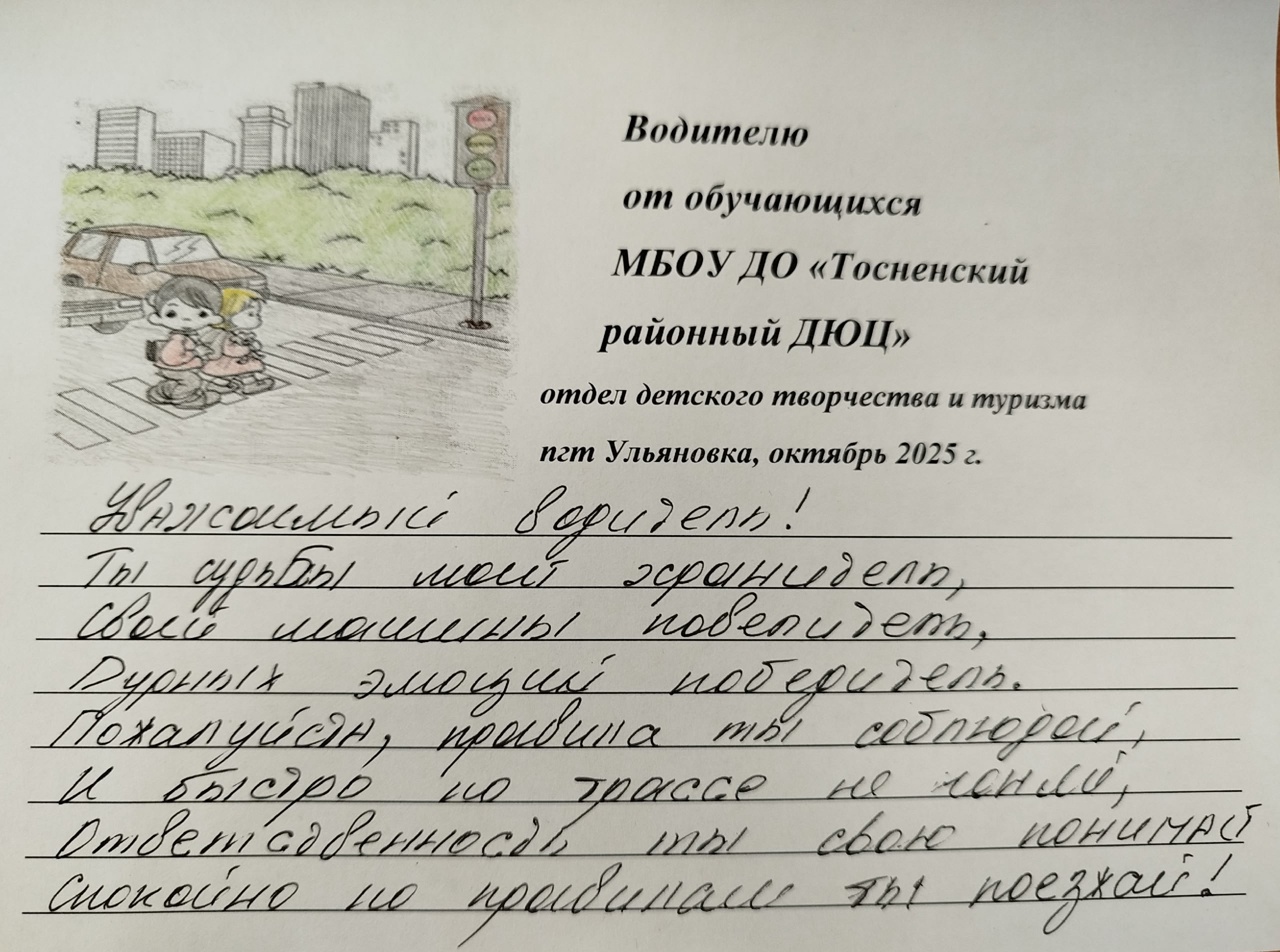 Водителю
от обучающихся
МБОУ ДО «Тосненский
районный ДЮЦ»
отдел детского творчества и туризма
пгт Ульяновка, октябрь 2025 г.
Уважаемый водитель!
Ты судьбы моей хранитель,
Своей машины повелитель,
Дурных эмоций победитель.
Пожалуйста, правила ты соблюдай,
И быстро по трассе не гоняй,
Ответственность ты свою понимай
Спокойно по правилам ты поезжай!